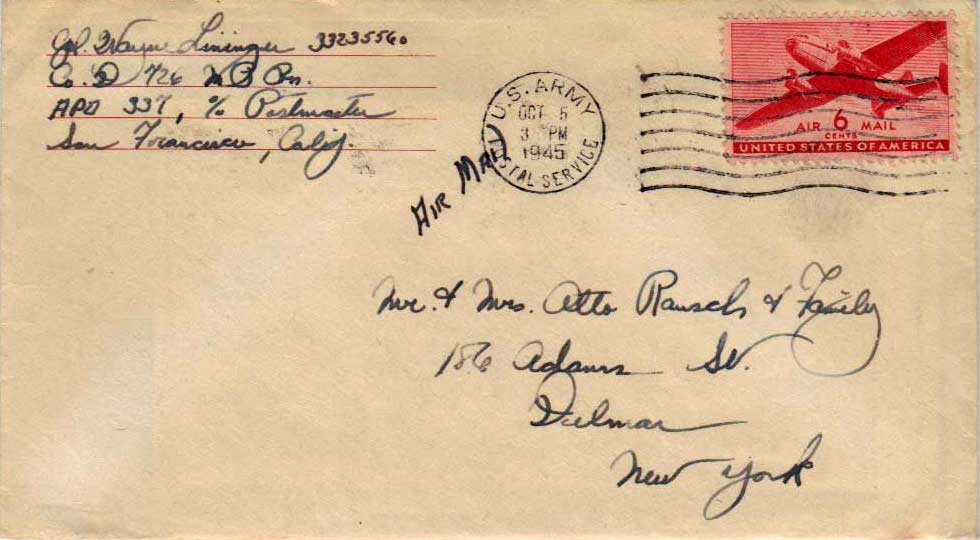 Cpl. Wayne Lininger 33235560
Co. D 726 M P Bn.
APO 337, % Postmaster
San Francisco, Calif.
U.S. ARMY
OCT 5
3 PM
1945
POSTAL SERVICE
AIR MAIL
6
CENTS
UNITED STATES OF AMERICA
Air Mail
Mr. & Mrs. Otto Rausch & Family
186 Adams St.
Delmar
New York